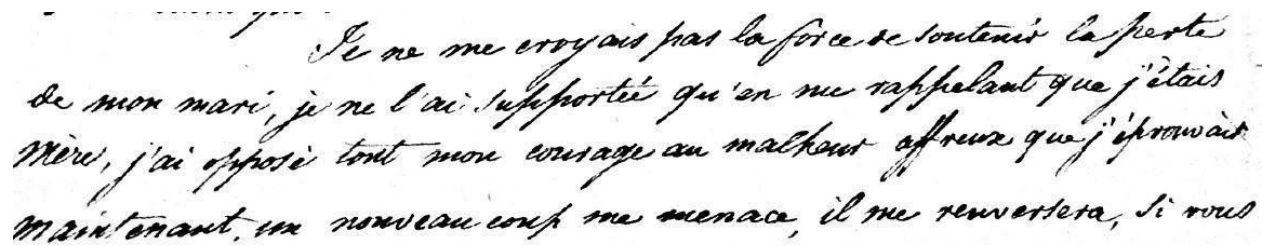 Je ne me croyais pas la force de soutenir la perte
de mon mari, je ne l'ai supportée qu'en me rappelant que j'étais
Mère, j'ai opposé tout mon courage au malheur affreux que j'éprouvais
maintenant, un nouveau coup me menace, il me renversera, si vous